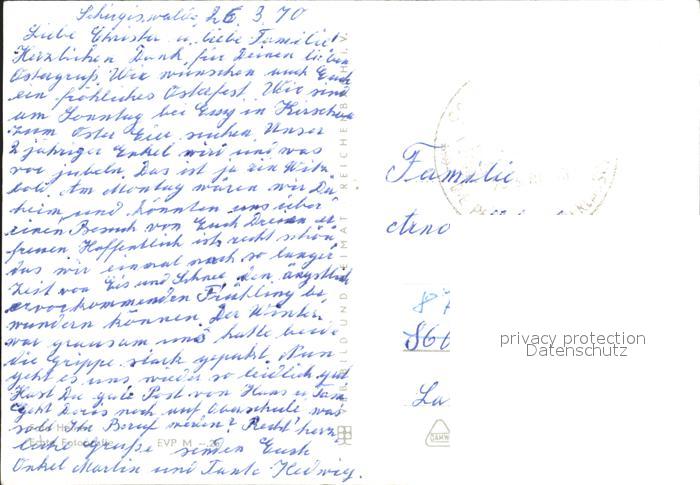 Schirgiswalde, 26.3.70
Liebe Christa u. liebe Familie!
Herzlichen Dank für Deinen lieben
Ostergruß. Wir wünschen auch Euch
ein fröhliches Osterfest. Wir sind
am Sonntag bei Emy in Kirschau
zum Oster Eier suchen. Unser
2 jähriger Enkel wird uns was
vor jubeln. Das ist ja ein Witz
bold. Am Montag wären wir Da
heim und könnten uns über
einen Besuch von Euch Dreien er
freuen. Hoffentlich ist recht schön
das wir einmal nach so langer
Zeit von Eis und Schnee den ängstlich
hervorkommenden Frühling be
wundern können. Der Winter
war grausam und hatte beide
die Grippe stark gepackt. Nun
geht es uns wieder so leidlich gut
Hast Du gute Post von Hans u. Fam
Geht Doris noch auf Oberschule, was
soll Ihr Beruf werden? Recht herz
liche Grüße senden Euch
Onkel Martin und Tante Hedwig.
Echte Fotografie
EVP M
BILD UND HEIMAT REICHENBACH I. V.
Familie
Arno
87
866
La
DAMW
privacy protection
Datenschutz